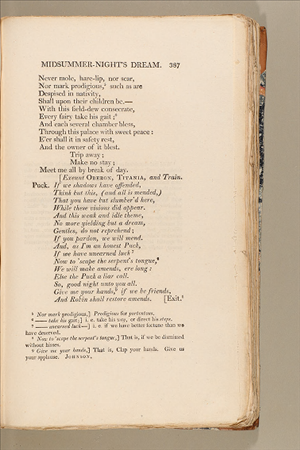 MIDSUMMER-NIGHT'S DREAM. 387
Never mole, hare-lip, nor scar,
Nor mark prodigious,⁶ such as are
Despised in nativity,
Shall upon their children be.—
With this field-dew consecrate,
Every fairy take his gait;
And each several chamber bless,
Through this palace with sweet peace:
E'er shall it in safety rest,
And the owner of it blest.
Trip away;
Make no stay;
Meet me all by break of day.
[Exeunt OBERON, TITANIA, and Train.
Puck. If we shadows have offended,
Think but this, (and all is mended,)
That you have but slumber'd here,
While these visions did appear.
And this weak and idle theme,
No more yielding but a dream,
Gentles, do not reprehend;
If you pardon, we will mend.
And, as I'm an honest Puck,
If we have unearned luck⁷
Now to 'scape the serpent's tongue,⁸
We will make amends, ere long:
Else the Puck a liar call.
So, good night unto you all.
Give me your hands,⁹ if we be friends,
And Robin shall restore amends. [Exit.
Nor mark prodigious,] Prodigious for portentous.
—— take his gait;] i. e. take his way, or direct his steps.
⁷ —— unearned luck—] i. e. if we have better fortune than we
have deserved.
⁸ Now to 'scape the serpent's tongue,] That is, if we be dismissed
without hisses.
⁹ Give me your hands,] That is, Clap your hands. Give us
your applause. JOHNSON.